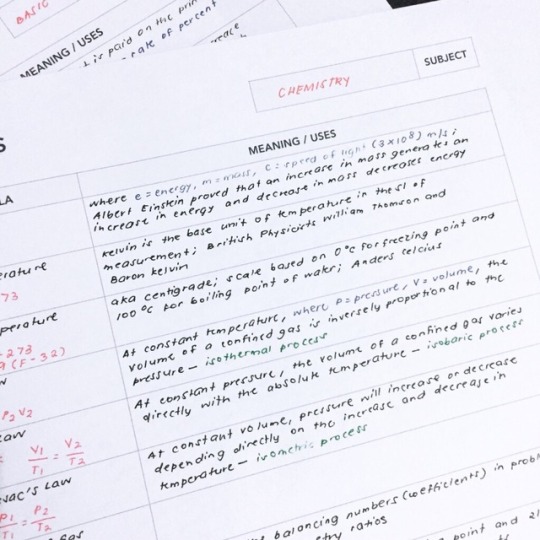 BASIC
MEANING / USES
is paid on the prin
rate of percent
CHEMISTRY
SUBJECT
S
LA
MEANING / USES
where e = energy, m = mass, c = speed of light (3x108) m/s;
Albert Einstein proved that an increase in mass generates an
increase in energy and decrease in mass decreases energy
kelvin is the base unit of temperature in the SI of
measurement; British Physicists William Thomson and
Baron kelvin
erature
73
aka centigrade; scale based on 0°c for freezing point and
100 °c for boiling point of water; Anders celcius
perature
-273
(F-32)
At constant temperature, where P = pressure, V = volume, the
volume of a confined gas is inversely proportional to the
pressure – isothermal process
w
P2 V2
At constant pressure, the volume of a confined gas varies
directly with the absolute temperature – isobaric process
Law
= V1/T1 = V2/T2
At constant volume, pressure will increase or decrease
depending directly on the increase and decrease in
temperature – isometric process
sac's Law
P1/T1 = P2/T2
balancing numbers (coefficients) in probl
etry ratios
Gas
point and 21